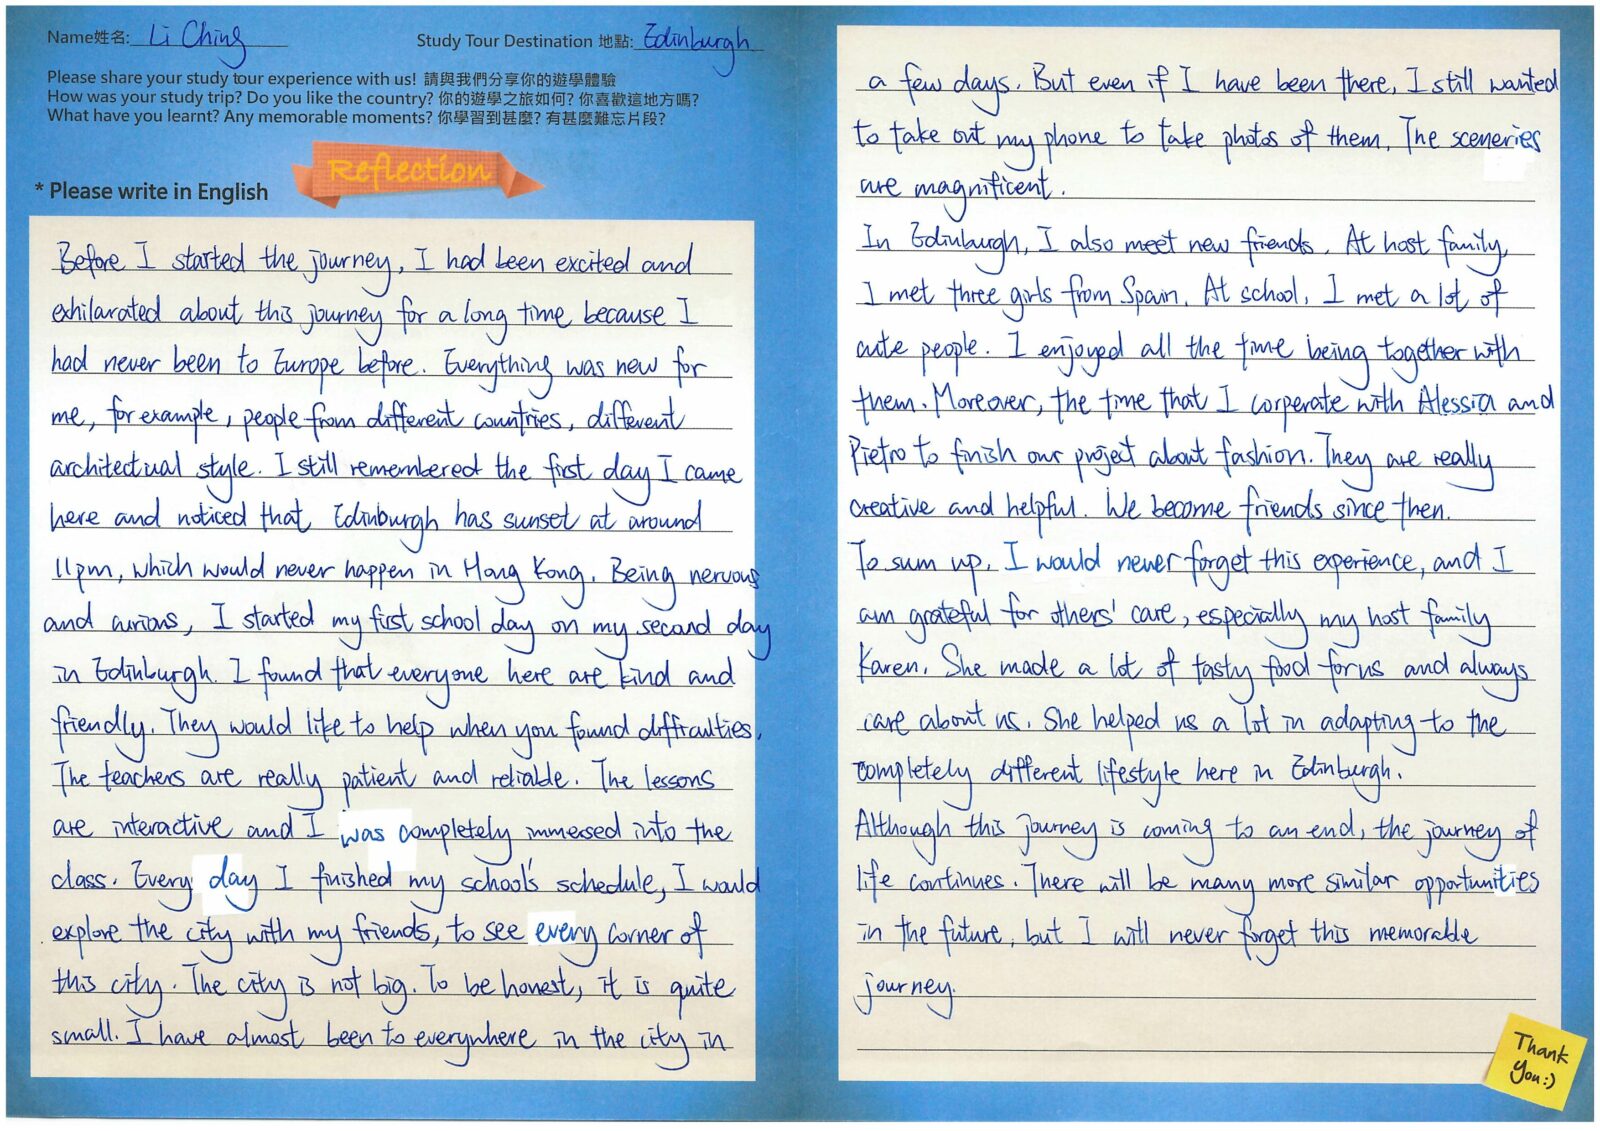 Name姓名: Li Ching
Study Tour Destination 地點: Edinburgh
Please share your study tour experience with us! 請與我們分享你的遊學體驗
How was your study trip? Do you like the country? 你的遊學之旅如何? 你喜歡這地方嗎?
What have you learnt? Any memorable moments? 你學習到甚麼? 有甚麼難忘片段?
Reflection
* Please write in English
Before I started the journey, I had been excited and
exhilarated about this journey for a long time because I
had never been to Europe before. Everything was new for
me, for example, people from different countries, different
architectual style. I still remembered the first day I came
here and noticed that Edinburgh has sunset at around
11pm, which would never happen in Hong Kong. Being nervous
and curious, I started my first school day on my second day
in Edinburgh. I found that everyone here are kind and
friendly. They would like to help when you found difficulties.
The teachers are really patient and reliable. The lessons
are interactive and I was completely immersed into the
class. Every day I finished my school's schedule, I would
explore the city with my friends, to see every corner of
this city. The city is not big. To be honest, it is quite
small. I have almost been to everywhere in the city in
a few days. But even if I have been there, I still wanted
to take out my phone to take photos of them. The sceneries
are magnificent.
In Edinburgh, I also meet new friends. At host family,
I met three girls from Spain. At school, I met a lot of
cute people. I enjoyed all the time being together with
them. Moreover, the time that I corperate with Alessia and
Pietro to finish our project about fashion. They are really
creative and helpful. We become friends since then.
To sum up, I would never forget this experience, and I
am grateful for others' care, especially my host family
Karen. She made a lot of tasty food for us and always
care about us. She helped us a lot in adapting to the
completely different lifestyle here in Edinburgh.
Although this journey is coming to an end, the journey of
life continues. There will be many more similar opportunities
in the future, but I will never forget this memorable
journey.
Thank
You:)